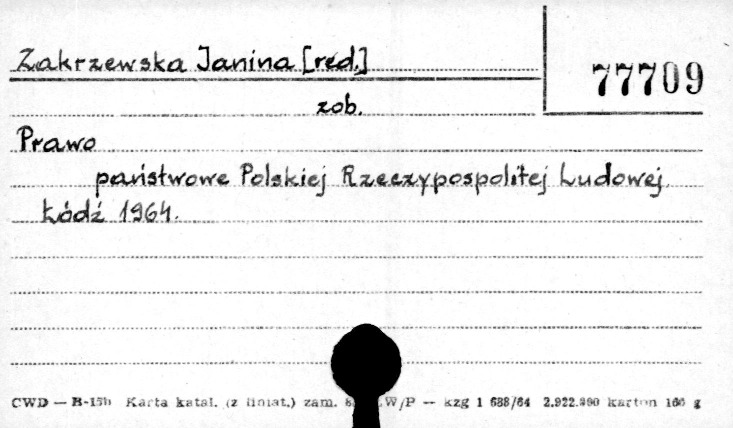 Zakrzewska Janina [red.]
77709
zob.
Prawo
państwowe Polskiej Rzeczypospolitej Ludowej.
Łódź 1964.
CWD — B-15b Karta katal. (z liniat.) zam. W/P — kzg 1 688/64 karton 160 g